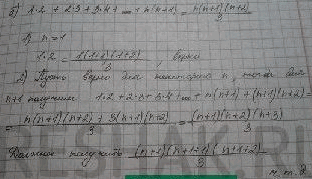 б) 1·2 + 2·3 + 3·4 + ... + n(n+1) = n(n+1)(n+2)/3
1) n = 1
1·2 = 1(1+1)(1+2)/3, верно
2) Пусть верно для некоторого n, тогда для
n+1 получим 1·2 + 2·3 + 3·4 + ... + n(n+1) + (n+1)(n+2) =
= n(n+1)(n+2) + 3(n+1)(n+2)/3 = (n+1)(n+2)(n+3)/3
Должны получить (n+1)(n+1+1)(n+1+2)/3
ч.т.д.